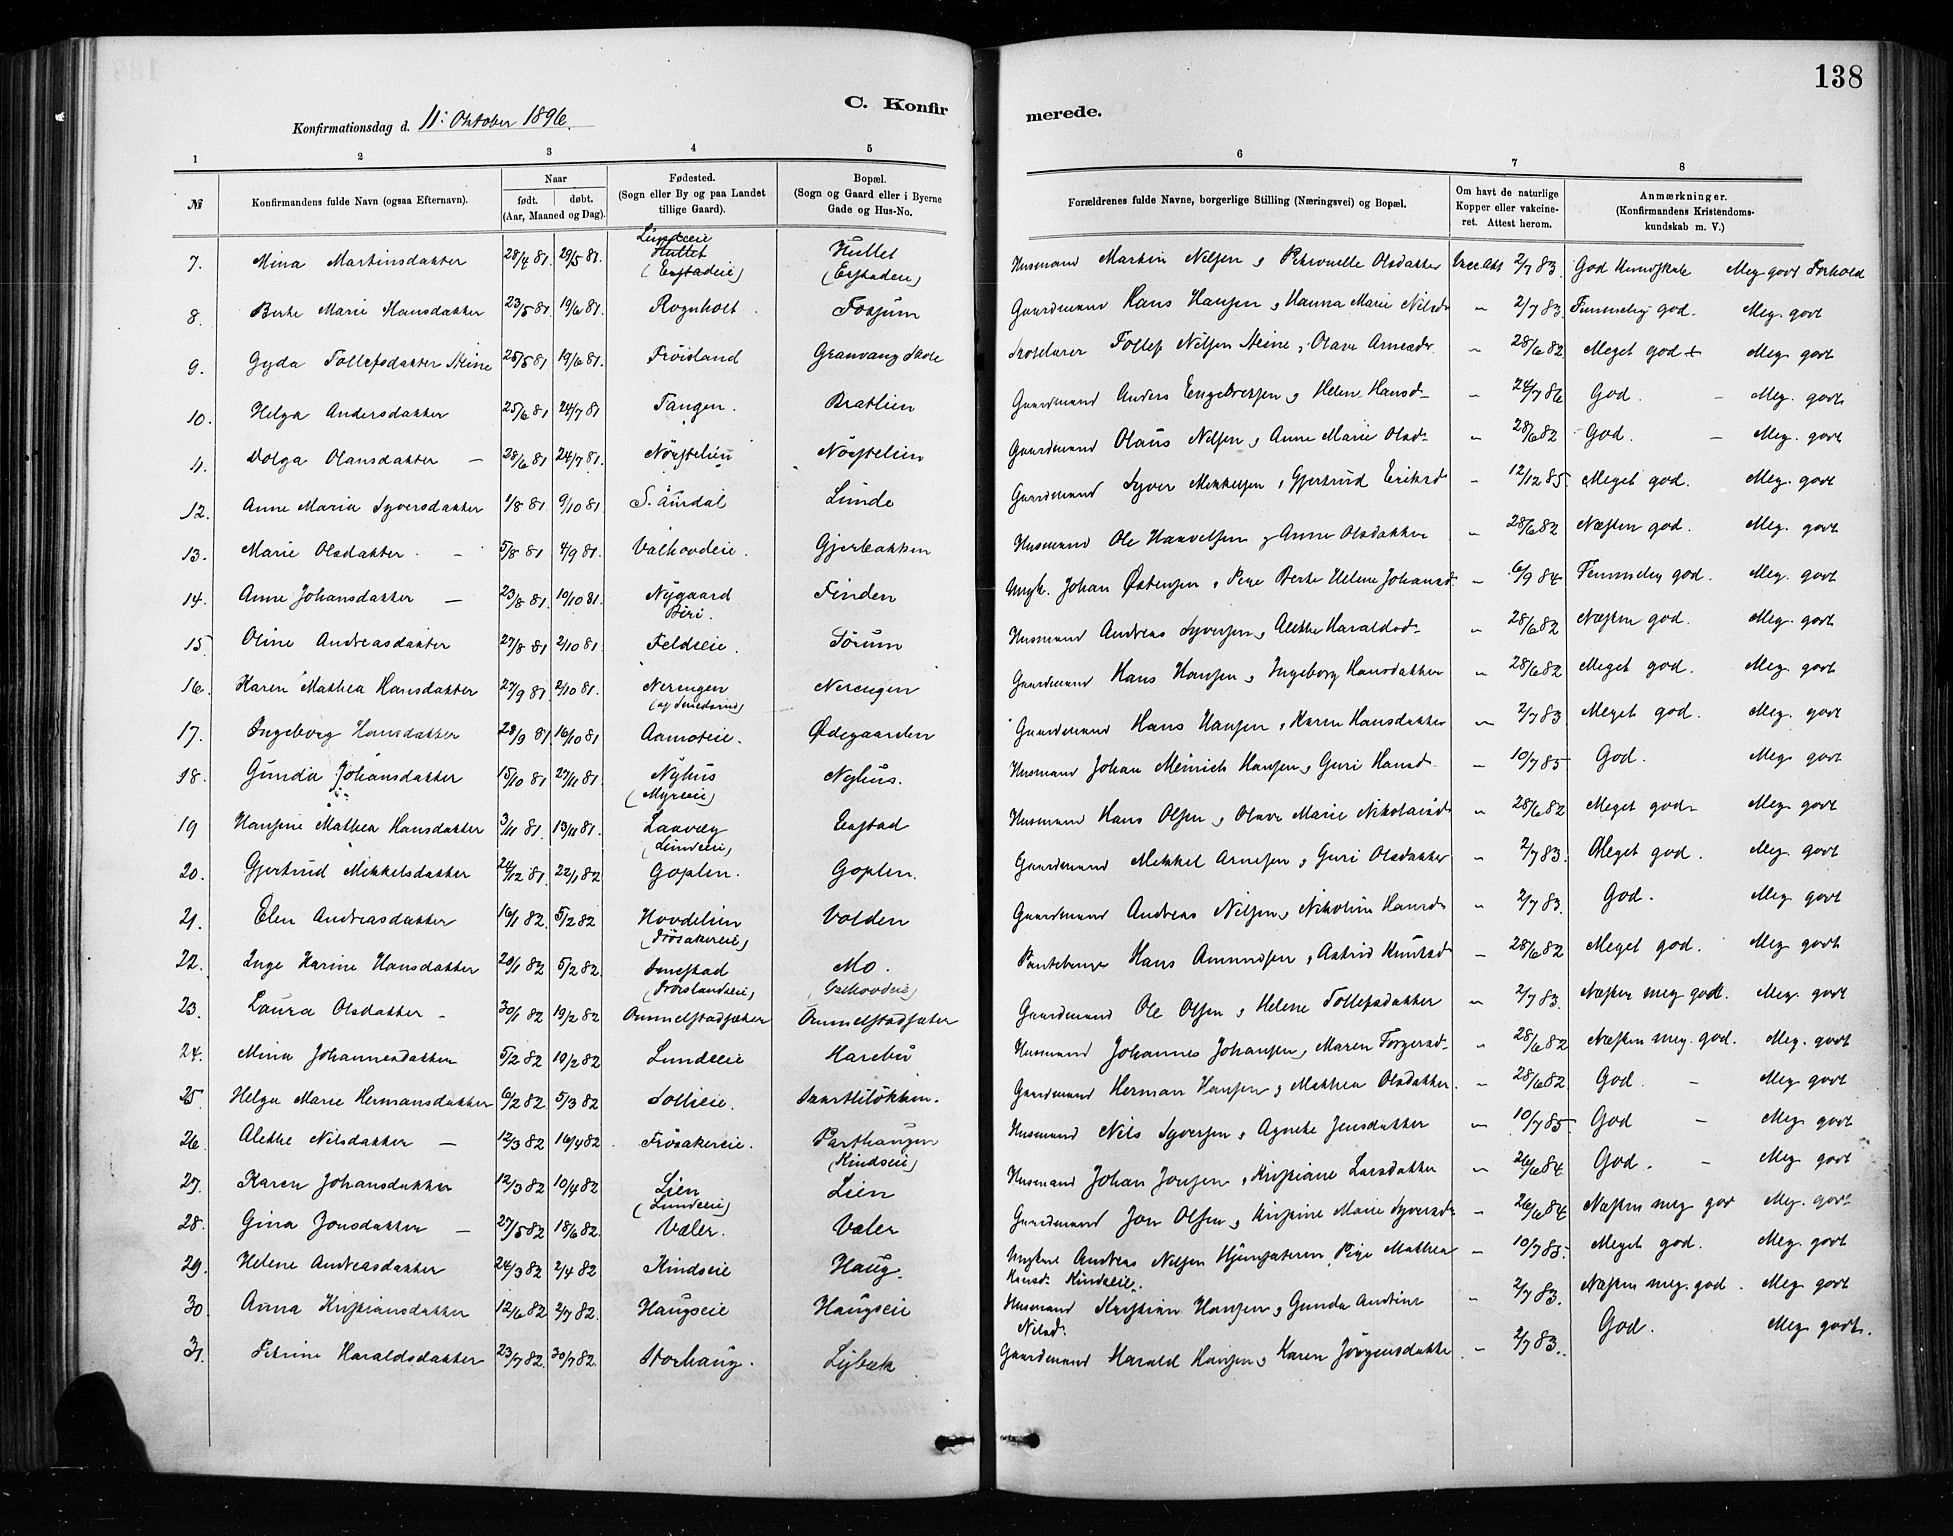 138
C. Konfirmerede.
Konfirmationsdag d. 11. Oktober 1896.
1 2 3 4 5 6 7 8
№ Konfirmandens fulde Navn (ogsaa Efternavn). Naar født. døbt. (Aar, Maaned og Dag). Fødested. (Sogn eller By og paa Landet tillige Gaard). Bopæl. (Sogn og Gaard eller i Byerne Gade og Hus-No. Forældrenes fulde Navne, borgerlige Stilling (Næringsvei) og Bopæl. Om havt de naturlige Kopper eller vakcineret. Attest herom. Anmærkninger. (Konfirmandens Kristendomskundskab m. V.)
7. Mina Martinsdatter 28/4 81. 29/5 81. Lundeeie Hultet (Enstadeie) Hultet (Enstadeie) Husmand Martin Nilsen & Petronelle Olsdatter Vacc. Att. 2/7 83. God Kundskab Meg. godt Forhold
8. Berte Marie Hansdatter 23/5 81. 19/6 81. Rognholt Fossum Gaardmand Hans Hansen & Hanna Marie Nilsd. " 2/7 83. Temmelig god. Meg. godt
9. Gyda Tollefsdatter Steine 25/5 81 19/6 81. Fröisland Granvang Skole Skolelærer Tollef Nilsen Steine & Olave Arnesdr. " 28/6 82 Meget god + Meg. godt
10. Helga Andersdatter 25/6 81 24/7 81 Tangen. Bratlien Gaardmand Anders Engebretsen & Helene Hansd. " 24/7 86 God. – Meg. godt
11. Volga Olausdatter – 28/6 81 24/7 81. Nörstelien Nörstelien Gaardmand Olaus Nilsen & Anne Marie Olsd. " 28/6 82 God. – Meg. godt
12. Anne Maria Syversdatter 1/8 81. 9/10 81. S. Aurdal Lunde Gaardmand Syver Mikkelsen & Gjertrud Eriksd " 12/12 85 Meget god. Meg. godt
13. Marie Olsdatter – 5/8 81 4/9 81. Valhovdeie. Gjerbakken Husmand Ole Haavelsen & Anne Olsdatter " 28/6 82 Næsten god. Meg. godt
14. Anne Johansdatter – 23/8 81. 10/10 81. Nygaard Biri. Finden Ungk. Johan Østensen & Pige Berte Helene Johansd. " 6/9 84 Temmelig god. Meg. godt
15. Oline Andreasdatter 27/8 81 2/10 81. Feldeeie. Sörum Husmand Andreas Syversen & Alethe Haraldsd. " 28/6 82 Næsten god. Meg. godt
16. Karen Mathea Hansdatter 27/9 81 2/10 81. Nerengen Nerengen Gaardmand Hans Hansen & Ingeborg Hansdatter " 28/6 82 Meget god. Meg. godt
17. Ingeborg Hansdatter 28/9 81 16/10 81 Aamoteie. Ødegaarden Gaardmand Hans Hansen & Karen Hansdatter " 2/7 83 Meget god. Meg. godt
18. Gunda Johansdatter 15/10 81 27/11 81. Nyhus (Myreeie) Nyhus. Husmand Johan Meinich Hansen & Guri Hansd. " 10/7 85 God. Meg. godt
19 Hansine Mathea Hansdatter 3/11 81. 13/11 81. Laaveg (Lundeeie) Enstad Husmand Hans Olsen & Olave Marie Nikolaisd. " 28/6 82 Meget god Meg. godt
20. Gjertrud Mikkelsdatter 24/12 81. 22/1 82 Goplen. Goplen. Gaardmand Mikkel Arnesen & Guri Olsdatter " 2/7 83. Meget god. Meg. godt
21. Elen Andreasdatter 16/1 82. 5/2 82 Hovdelien (Frösakereie) Volden Gaardmand Andreas Nilsen & Nikoline Hansd. " 2/7 83. God. Meg. godt
22. Inge Karine Hansdatter 20/1 82 5/2 82. (Fröislandseie) Mo. (Valhovdeie) Hans Amundsen & Astrid Knutsd " 28/6 82 Meget god. Meg. godt
23. Laura Olsdatter – 30/1 82 19/2 82 Ommelstadsæter Ommelstadsæter Gaardmand Ole Olsen & Helene Tollefsdatter " 2/7 83. Næsten meg god. Meg. godt
24. Mina Johannesdatter 5/2 82. 19/2 82 Lundeeie Harebu Husmand Johannes Johansen & Maren Torgersd. " 28/6 82 Næsten meg. god. Meg. godt
25. Helga Marie Hermansdatter 6/2 82 5/3 82 Sollieie. Gaardmand Herman Hansen & Mathea Olsdatter. " 28/6 82 God. – Meg godt
26. Alethe Nilsdatter – 12/3 82 16/4 82 Frösakereie. Parthaugen (Kindseie) Husmand Nils Syversen & Agnethe Jensdatter " 10/7 85 God – Meg godt
27. Karen Johansdatter 12/3 82 10/4 82 Lien (Lundeeie) Lien Husmand Johan Jonsen & Kristiane Larsdatter " 26/6 84 God. – Meg godt
28. Gina Jonsdatter – 27/5 82 18/6 82. Væler. Væler Gaardmand Jon Olsen & Kristine Marie Syversd. " 26/6 84 Næsten meg god Meg. godt
29. Helene Andreasdatter 24/3 82 2/4 82 Kindseie Haug. Ungkarl Andreas Nilsen Pige Mathea Hansd. Kindseie. " 10/7 85. Meget god. Meg. godt
30. Anna Kristiansdatter 12/6 82 2/7 82. Haugseie Haugseie Husmand Kristian Hansen & Gunda Andrine Nilsd. " 2/7 83. Næsten meg. god. Meg godt
31. Petrine Haraldsdatter 23/7 82. 30/7 82. Storhaug. Lybæk Gaardmand Harald Hansen & Karen Jörgensdatter. " 2/7 83. God. Meg godt.